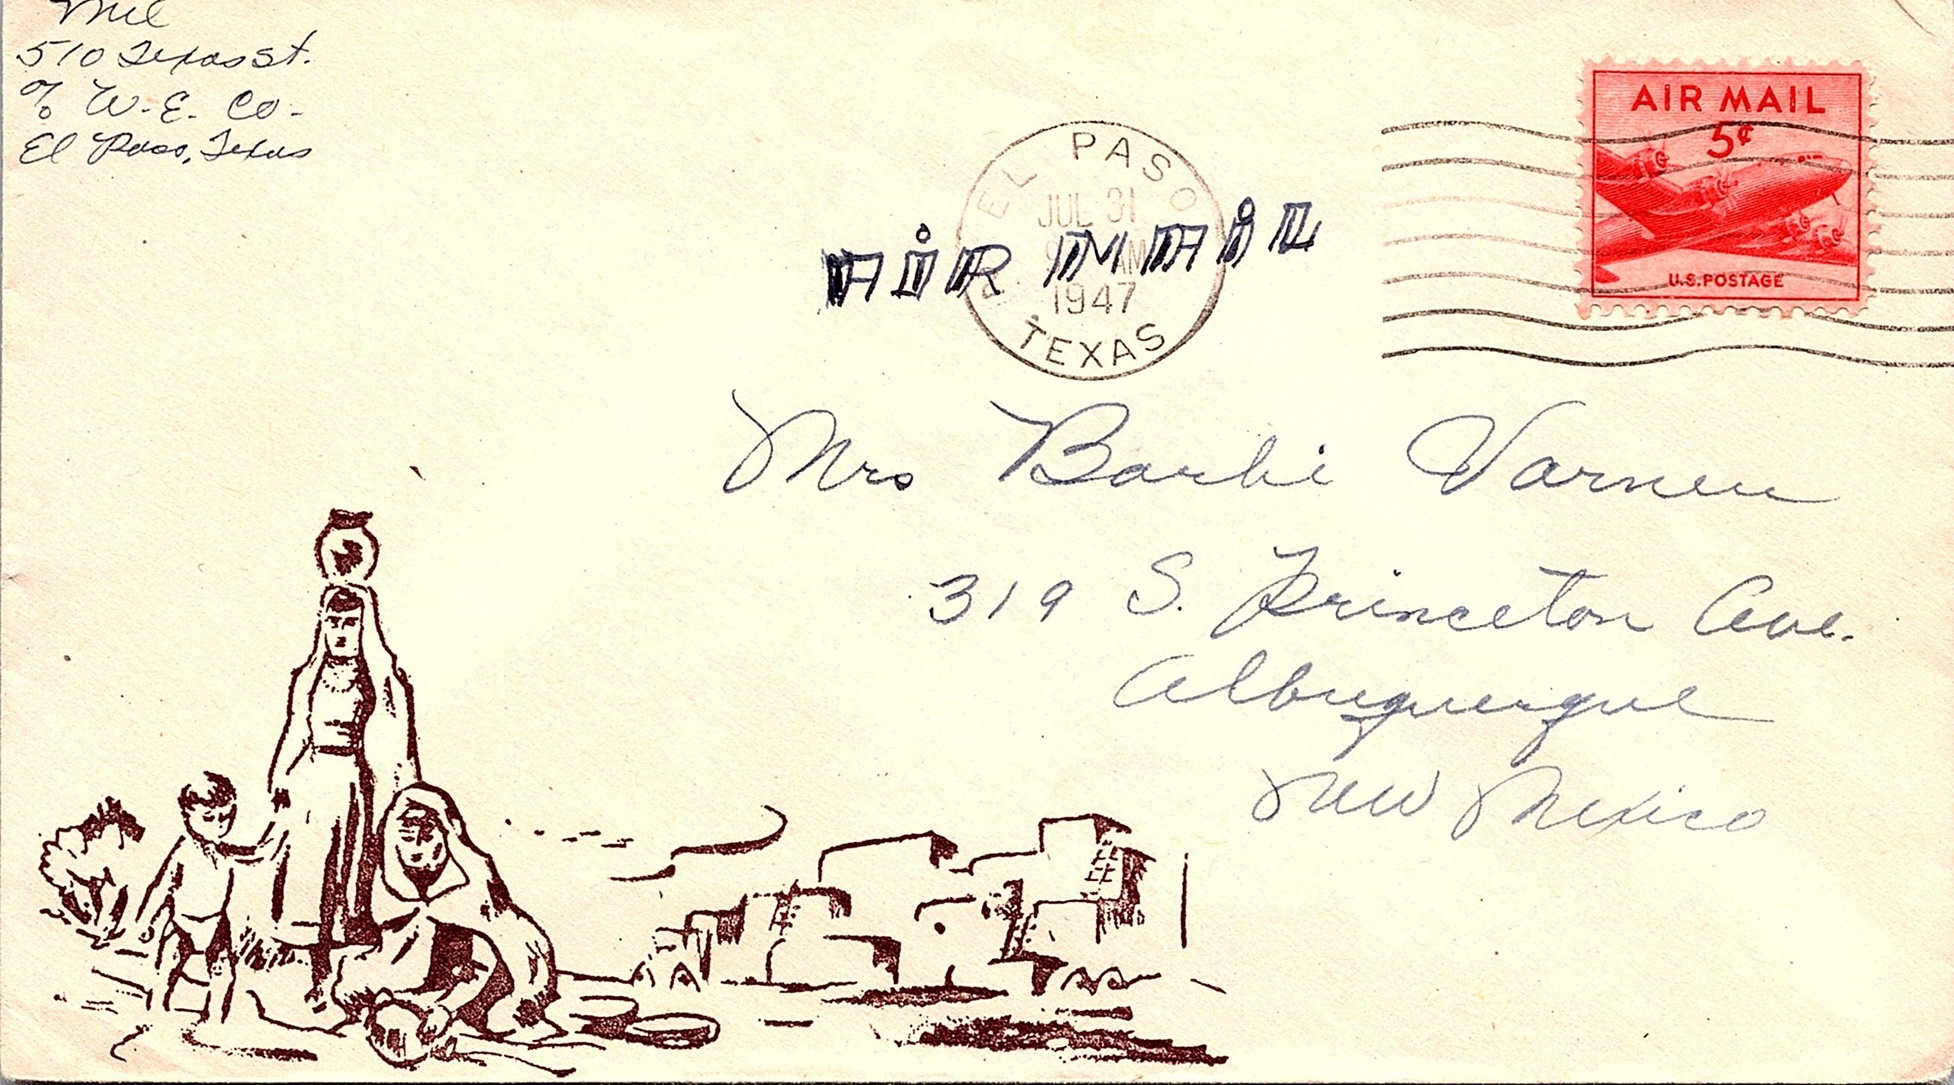 Mel
510 Texas St.
% W.E. Co.
El Paso, Texas
AIR MAIL
5¢
U.S. POSTAGE
EL PASO
JUL 31
AM
1947
TEXAS
AiR MAiL
Mrs Barbi Varner
319 S. Princeton Ave.
Albuquerque
New Mexico